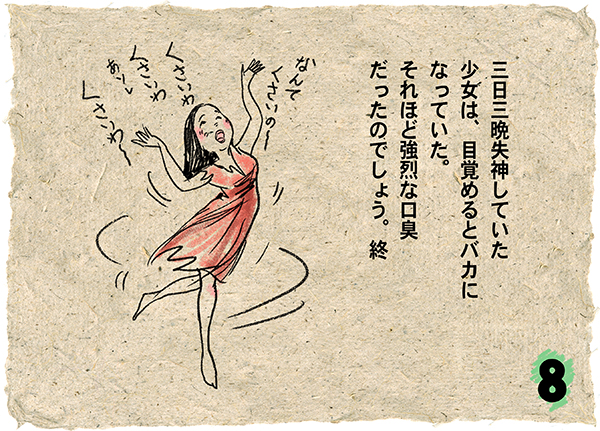 三日三晩失神していた
少女は、目覚めるとバカに
なっていた。
それほど強烈な口臭
だったのでしょう。 終
なんて
くさいの〜
くさいわ
くさいわ
あ〜
くさいわ〜
8